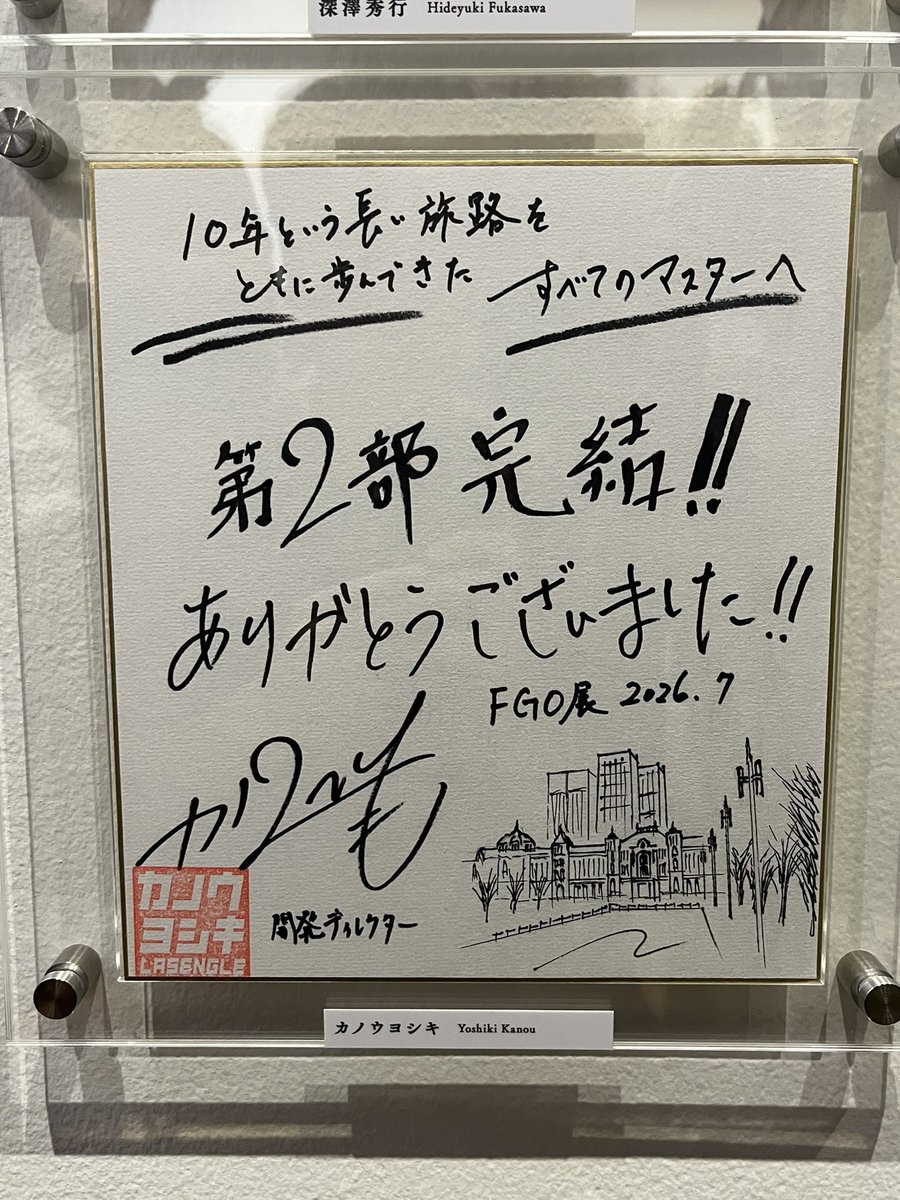 深澤秀行 Hideyuki Fukasawa
10年という長い旅路を
ともに歩んできた すべてのマスターへ
第2部完結!!
ありがとうございました!!
FGO展 2026.7
カノウ
ヨシキ
LASENGLE
開発ディレクター
カノウヨシキ Yoshiki Kanou